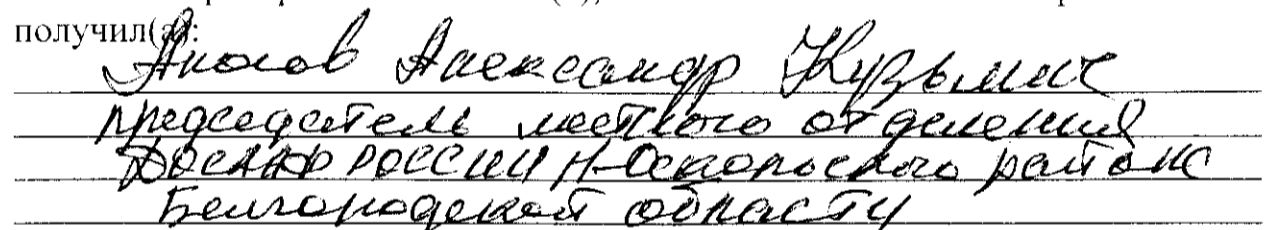 получил(а):
Акопов Александр Кузьмич
председатель местного отделения
ДОСААФ РОССИИ Н-Оскольского района
Белгородской области